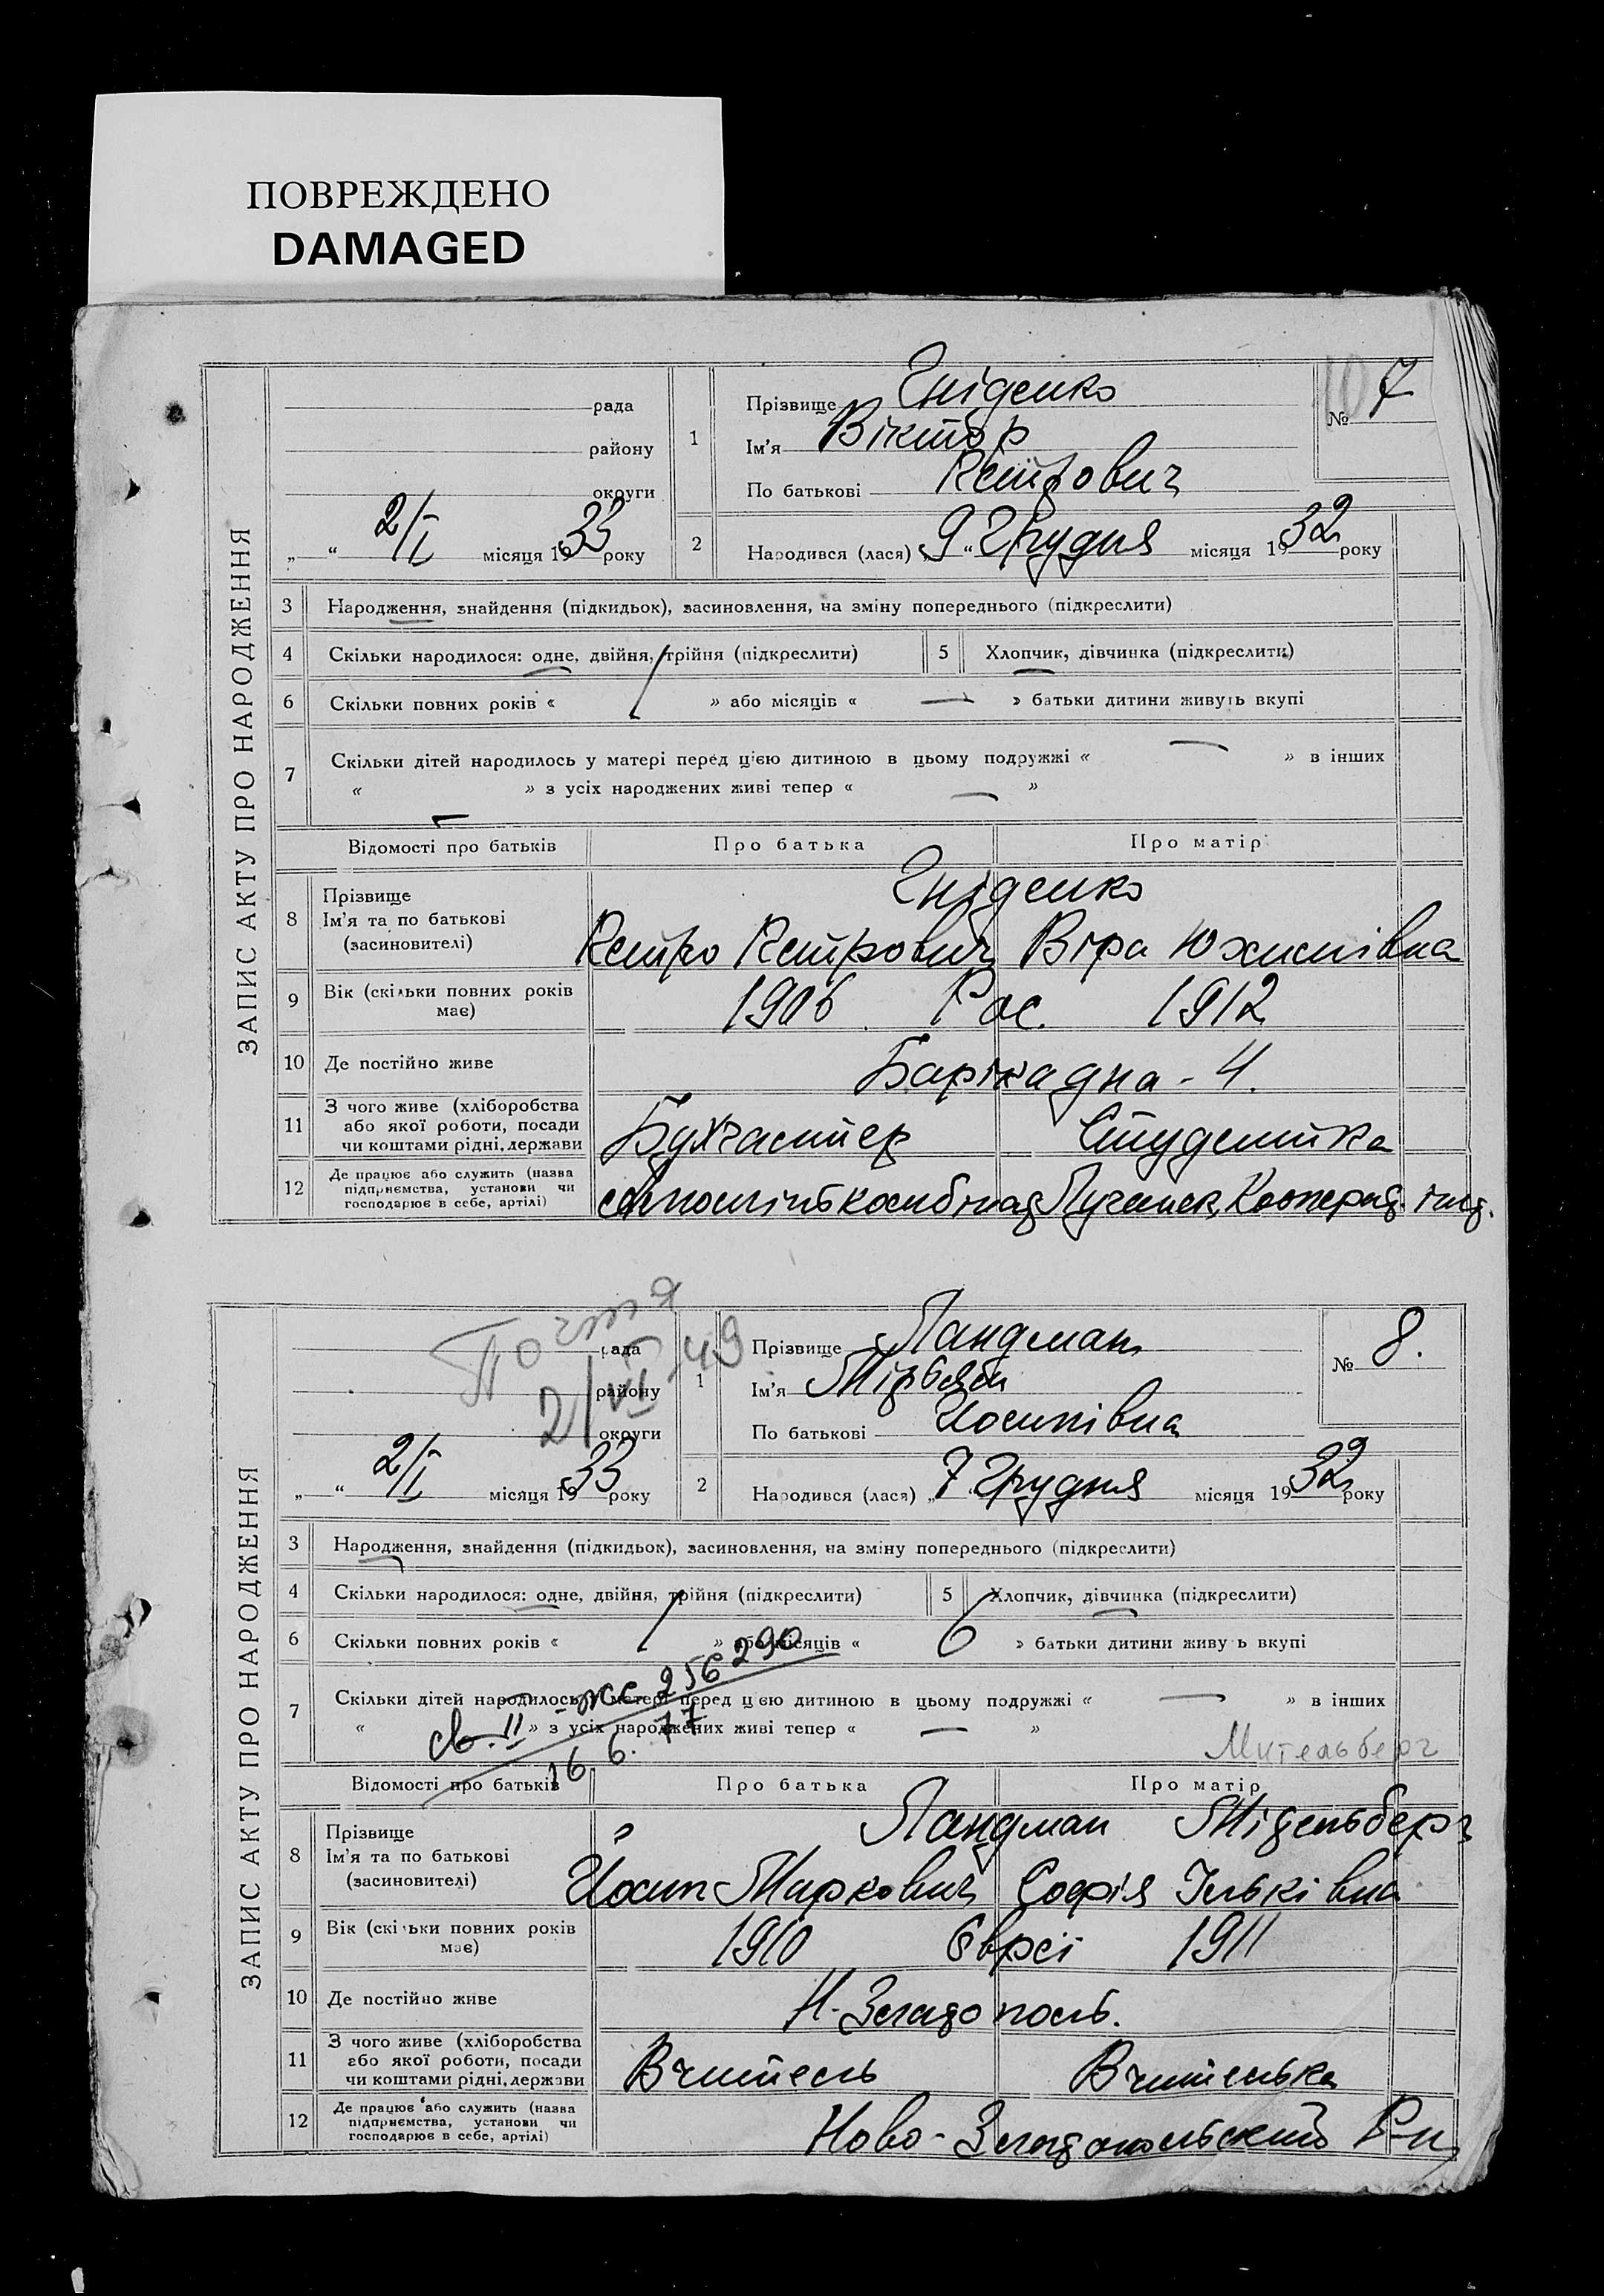 ПОВРЕЖДЕНО
DAMAGED
ЗАПИС АКТУ ПРО НАРОДЖЕННЯ
рада
району
округи
„ “ 2/I місяця 1933 року
1
Прізвище Гніденко
Ім'я Віктор
По батькові Петрович
№ 7
2
Народився (лася) „9“ Грудня місяця 1932 року
3 Народження, знайдення (підкидьок), засиновлення, на зміну попереднього (підкреслити)
4 Скільки народилося: одне, двійня, трійня (підкреслити) 5 Хлопчик, дівчинка (підкреслити)
6 Скільки повних років « 1 » або місяців « — » батьки дитини живуть вкупі
7 Скільки дітей народилось у матері перед цією дитиною в цьому подружжі « — » в інших
« — » з усіх народжених живі тепер « — »
Відомості про батьків Про батька Про матір
8 Прізвище Ім'я та по батькові (засиновителі)
Гніденко
Петро Петрович Віра Юхимівна
9 Вік (скільки повних років має) 1906 Рос. 1912
10 Де постійно живе Барікадна - 4.
11 З чого живе (хліборобства або якої роботи, посади чи коштами рідні, держави
Бухгалтер Студентка
12 Де працює або служить (назва підприємства, установи чи господарює в себе, артілі)
Кооперат. інст.
ЗАПИС АКТУ ПРО НАРОДЖЕННЯ
рада
району
округи
2/VI-49
„ “ 2/I місяця 1933 року
1
Прізвище Ландман
Ім'я
По батькові Йосипівна
№ 8.
2
Народився (лася) „7“ Грудня місяця 1932 року
3 Народження, знайдення (підкидьок), засиновлення, на зміну попереднього (підкреслити)
4 Скільки народилося: одне, двійня, трійня (підкреслити) 5 Хлопчик, дівчинка (підкреслити)
6 Скільки повних років « 1 » або місяців « 6 » батьки дитини живуть вкупі
7 Скільки дітей народилось у матері перед цією дитиною в цьому подружжі « — » в інших
« — » з усіх народжених живі тепер « — »
св. II - ЖС 256290
16. 6. 77
Мительберг
Відомості про батьків Про батька Про матір
8 Прізвище Ім'я та по батькові (засиновителі)
Ландман Мітельберг
Йосип Маркович Софія Ільківна
9 Вік (скільки повних років має) 1910 Євреї 1911
10 Де постійно живе Н-Златополь.
11 З чого живе (хліборобства або якої роботи, посади чи коштами рідні, держави
Вчитель Вчителька
12 Де працює або служить (назва підприємства, установи чи господарює в себе, артілі)
Ново-Златопольський Р-н